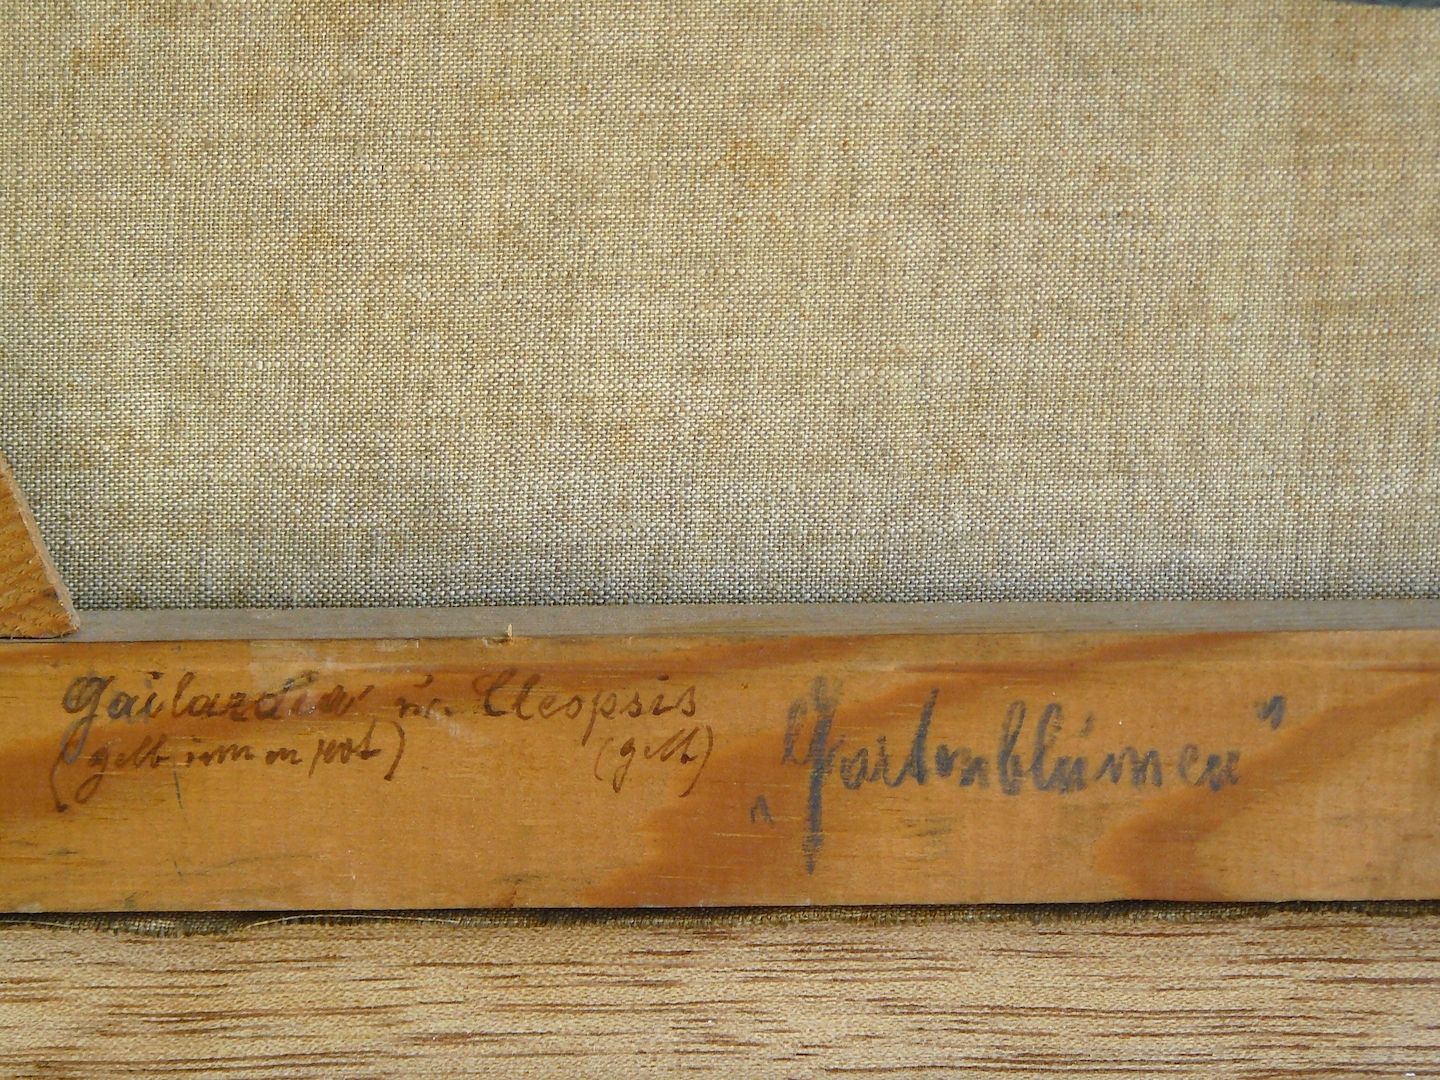 Gailardia u. Cleopsis
(gelb innen rot) (gelb)
„Gartenblumen"